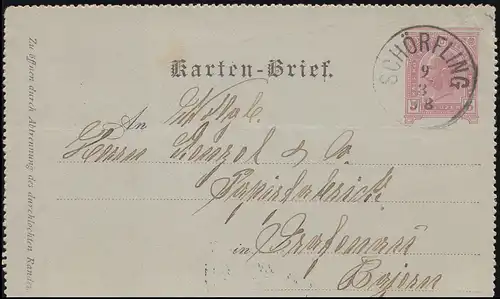 Zu öffnen durch Abtrennung des durchlochten Randes.
Karten-Brief.
SCHÖRFLING
9
3
An Wolgb.
Herrn & Co.
Papierfabrick
in Grafenau
Bayern